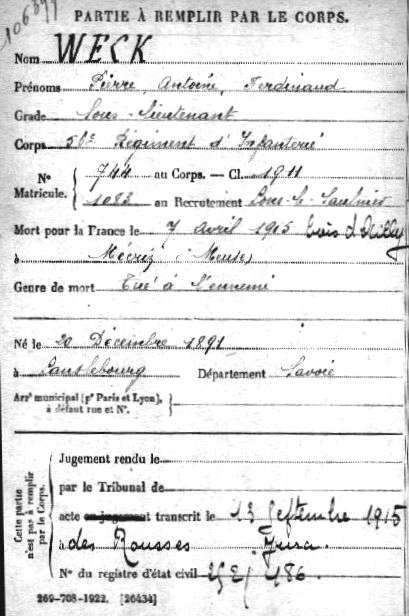 PARTIE À REMPLIR PAR LE CORPS.
Nom WECK
Prénoms Pierre, Antoine, Ferdinand
Grade Sous-Lieutenant
Corps 56e Régiment d'Infanterie
N° Matricule. { 744 au Corps. — Cl. 1911
1083 au Recrutement Lons-le-Saulnier
Mort pour la France le 7 avril 1915 bois d'Ailly
à Mécrin (Meuse)
Genre de mort Tué à l'ennemi
Né le 20 Décembre 1891
à Lanslebourg Département Savoie
Arrt municipal (pr Paris et Lyon), à défaut rue et N°. }
Cette partie n'est pas à remplir par le Corps.
Jugement rendu le
par le Tribunal de
acte ou jugement transcrit le 13 Septembre 1915
à des Rousses Jura.
N° du registre d'état civil 486.
269-708-1922. [26434]